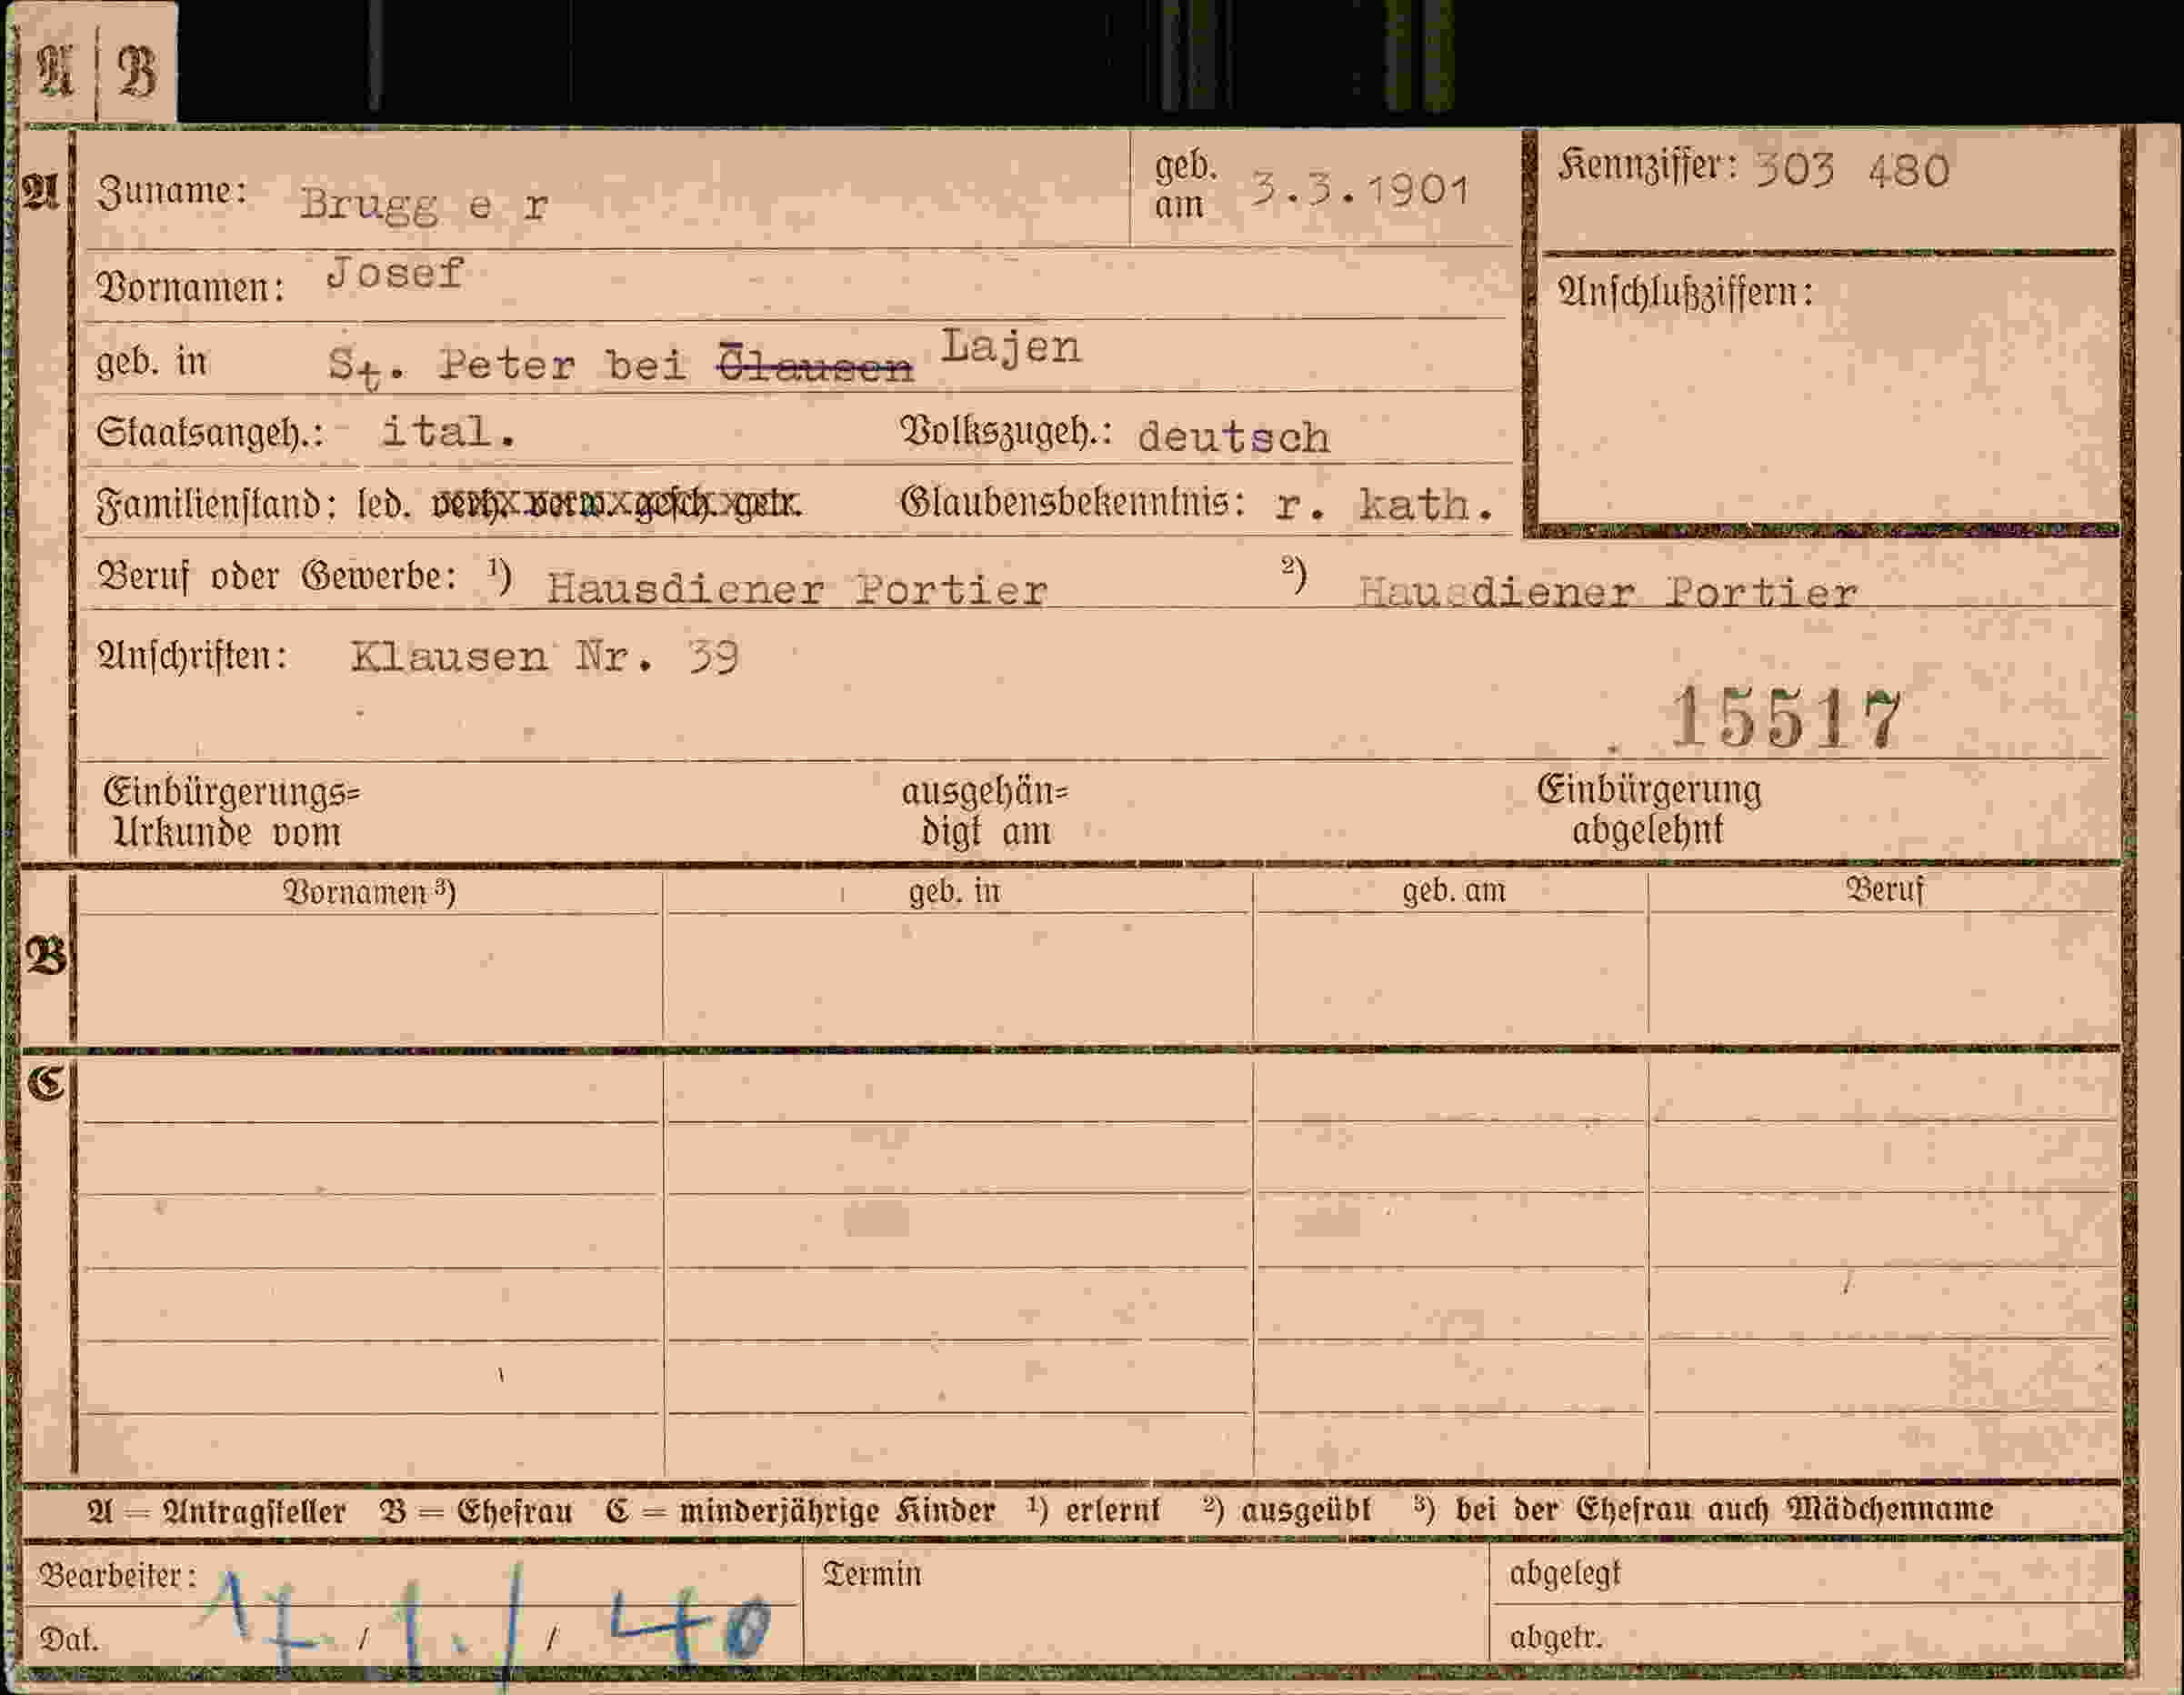 A | B
A Zuname: Brugg e r geb. am 3.3.1901 Kennziffer: 303 480
Vornamen: Josef Anschlußziffern:
geb. in St. Peter bei Clausen Lajen
Staatsangeh.: ital. Volkszugeh.: deutsch
Familienstand: led. verh. verw. gesch. getr. Glaubensbekenntnis: r. kath.
Beruf oder Gewerbe: ¹) Hausdiener Portier ²) Hausdiener Portier
Anschriften: Klausen Nr. 39
15517
Einbürgerungs= ausgehän= Einbürgerung
Urkunde vom digt am abgelehnt
B Vornamen ³) geb. in geb. am Beruf
C
A = Antragsteller B = Ehefrau C = minderjährige Kinder ¹) erlernt ²) ausgeübt ³) bei der Ehefrau auch Mädchenname
Bearbeiter: Termin abgelegt
Dat. 17 / 1. / 40 abgetr.